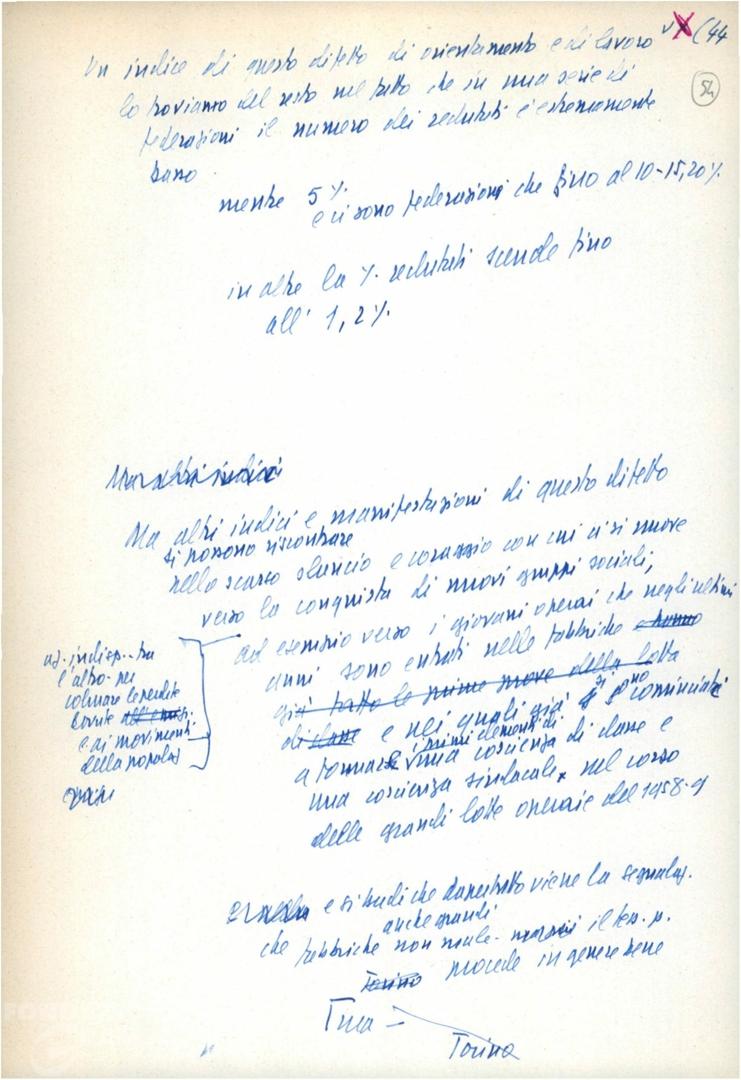 (44
54
Un indice di questo difetto di orientamento e di lavoro
lo troviamo del resto nel fatto che in una serie di
federazioni il numero dei reclutati è estremamente
basso
mentre 5%
e ci sono federazioni che fino al 10-15, 20%
in altre la % reclutati scende fino
all' 1, 2%
Ma altri indici
Ma altri indici e manifestazioni di questo difetto
si possono riscontrare
nello scarso slancio e coraggio con cui ci si muove
verso la conquista di nuovi gruppi sociali,
ad esempio verso i giovani operai che negli ultimi
anni sono entrati nelle fabbriche e hanno
già fatto le prime prove della lotta
di classe e nei quali già si sono cominciati
a formare i primi elementi di una coscienza di classe e
una coscienza sindacale nel corso
delle grandi lotte operaie del 1958-9
ad. indisp. tra
l'altro per
colmare le perdite
dovute all'
e ai movimenti
della popolaz
e si badi che dappertutto viene la segnalaz.
anche grandi
che fabbriche non male il tess. p.
Torino procede in genere bene
Torino